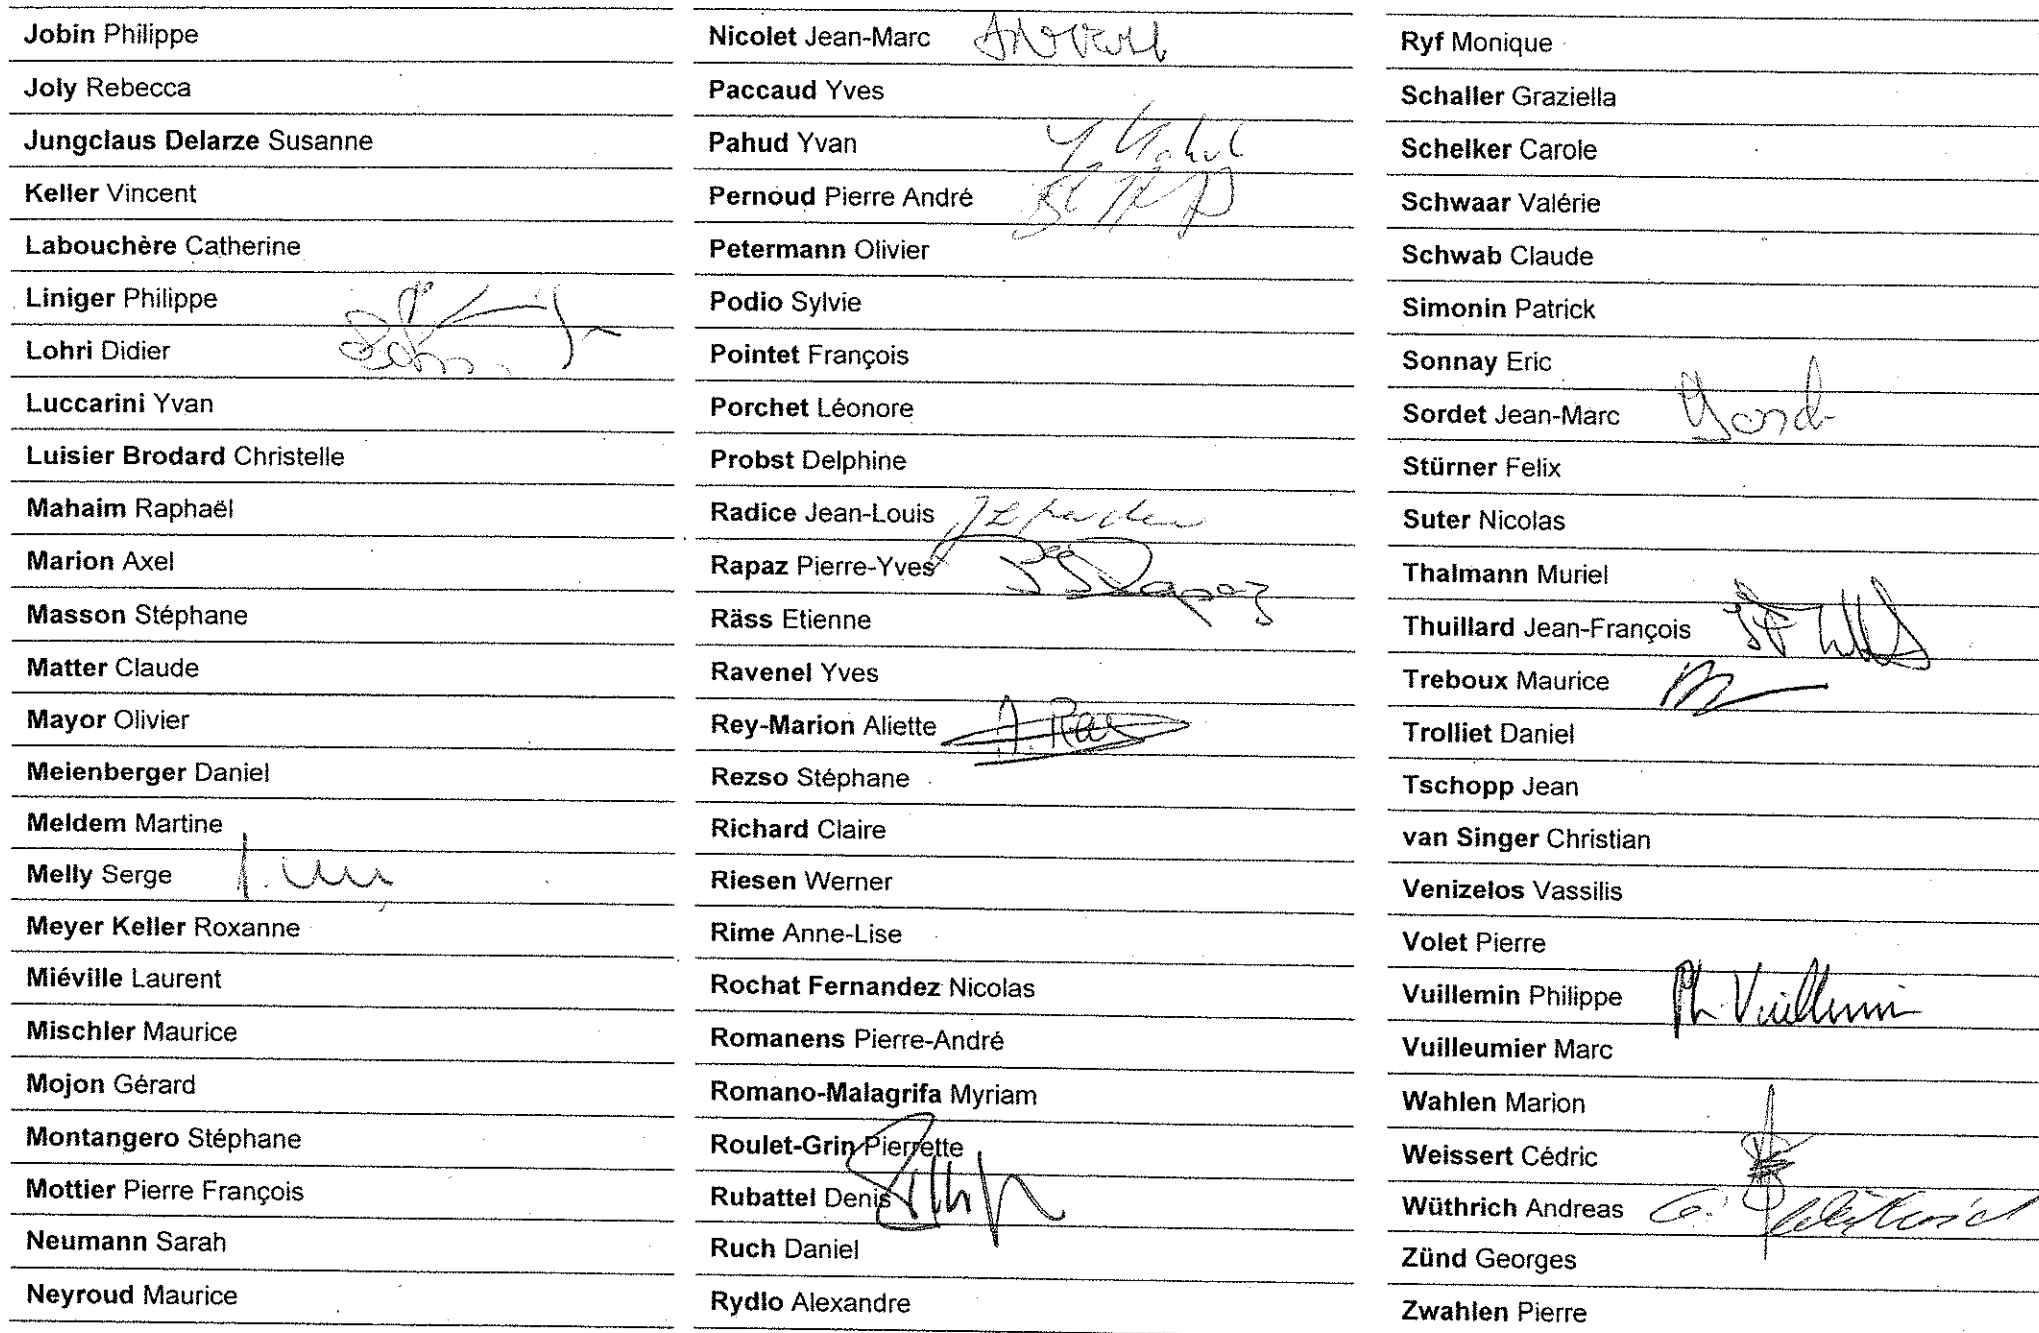 Jobin Philippe
Joly Rebecca
Jungclaus Delarze Susanne
Keller Vincent
Labouchère Catherine
Liniger Philippe
Lohri Didier
Luccarini Yvan
Luisier Brodard Christelle
Mahaim Raphaël
Marion Axel
Masson Stéphane
Matter Claude
Mayor Olivier
Meienberger Daniel
Meldem Martine
Melly Serge
Meyer Keller Roxanne
Miéville Laurent
Mischler Maurice
Mojon Gérard
Montangero Stéphane
Mottier Pierre François
Neumann Sarah
Neyroud Maurice
Nicolet Jean-Marc
Paccaud Yves
Pahud Yvan Y. Pahud
Pernoud Pierre André
Petermann Olivier
Podio Sylvie
Pointet François
Porchet Léonore
Probst Delphine
Radice Jean-Louis
Rapaz Pierre-Yves Rapaz
Räss Etienne
Ravenel Yves
Rey-Marion Aliette
Rezso Stéphane
Richard Claire
Riesen Werner
Rime Anne-Lise
Rochat Fernandez Nicolas
Romanens Pierre-André
Romano-Malagrifa Myriam
Roulet-Grin Pierrette
Rubattel Denis
Ruch Daniel
Rydlo Alexandre
Ryf Monique
Schaller Graziella
Schelker Carole
Schwaar Valérie
Schwab Claude
Simonin Patrick
Sonnay Eric
Sordet Jean-Marc
Stürner Felix
Suter Nicolas
Thalmann Muriel
Thuillard Jean-François
Treboux Maurice
Trolliet Daniel
Tschopp Jean
van Singer Christian
Venizelos Vassilis
Volet Pierre
Vuillemin Philippe Ph. Vuillemin
Vuilleumier Marc
Wahlen Marion
Weissert Cédric
Wüthrich Andreas
Zünd Georges
Zwahlen Pierre